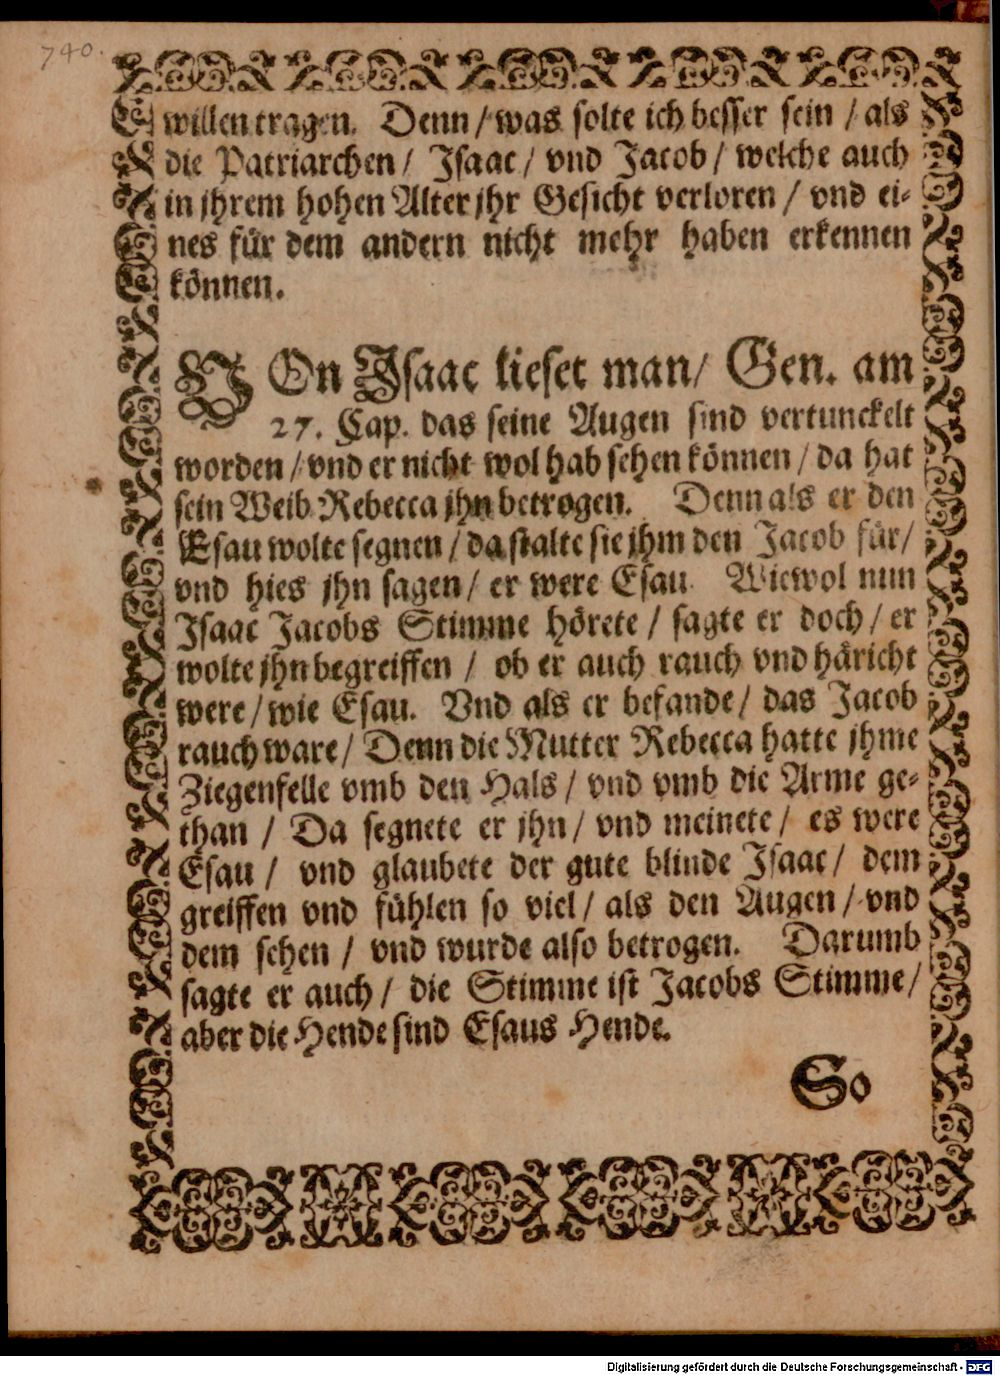 740.
willen tragen. Denn / was solte ich besser sein / als
die Patriarchen / Isaac / vnd Jacob / welche auch
in jhrem hohen Alter jhr Gesicht verloren / vnd ei-
nes für dem andern nicht mehr haben erkennen
können.
VOn Isaac lieset man / Gen. am
27. Cap. das seine Augen sind vertunckelt
worden / vnd er nicht wol hab sehen können / da hat
sein Weib Rebecca jhn betrogen. Denn als er den
Esau wolte segnen / da stalte sie jhm den Jacob für /
vnd hies jhn sagen / er were Esau. Wiewol nun
Isaac Jacobs Stimme hörete / sagte er doch / er
wolte jhn begreiffen / ob er auch rauch vnd häricht
were / wie Esau. Vnd als er befande / das Jacob
rauch ware / Denn die Mutter Rebecca hatte jhme
Ziegenfelle vmb den Hals / vnd vmb die Arme ge-
than / Da segnete er jhn / vnd meinete / es were
Esau / vnd glaubete der gute blinde Isaac / dem
greiffen vnd fühlen so viel / als den Augen / vnd
dem sehen / vnd wurde also betrogen. Darumb
sagte er auch / die Stimme ist Jacobs Stimme /
aber die Hende sind Esaus Hende.
So
Digitalisierung gefördert durch die Deutsche Forschungsgemeinschaft - DFG